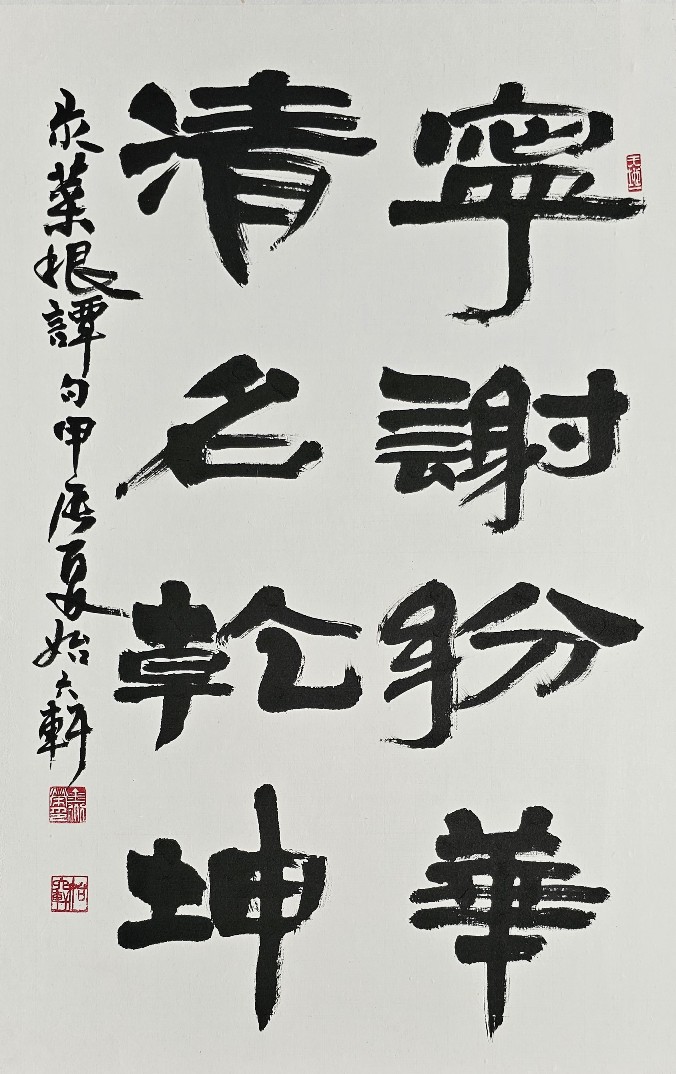 寧謝紛華
清名乾坤
录菜根譚句甲辰夏 軒